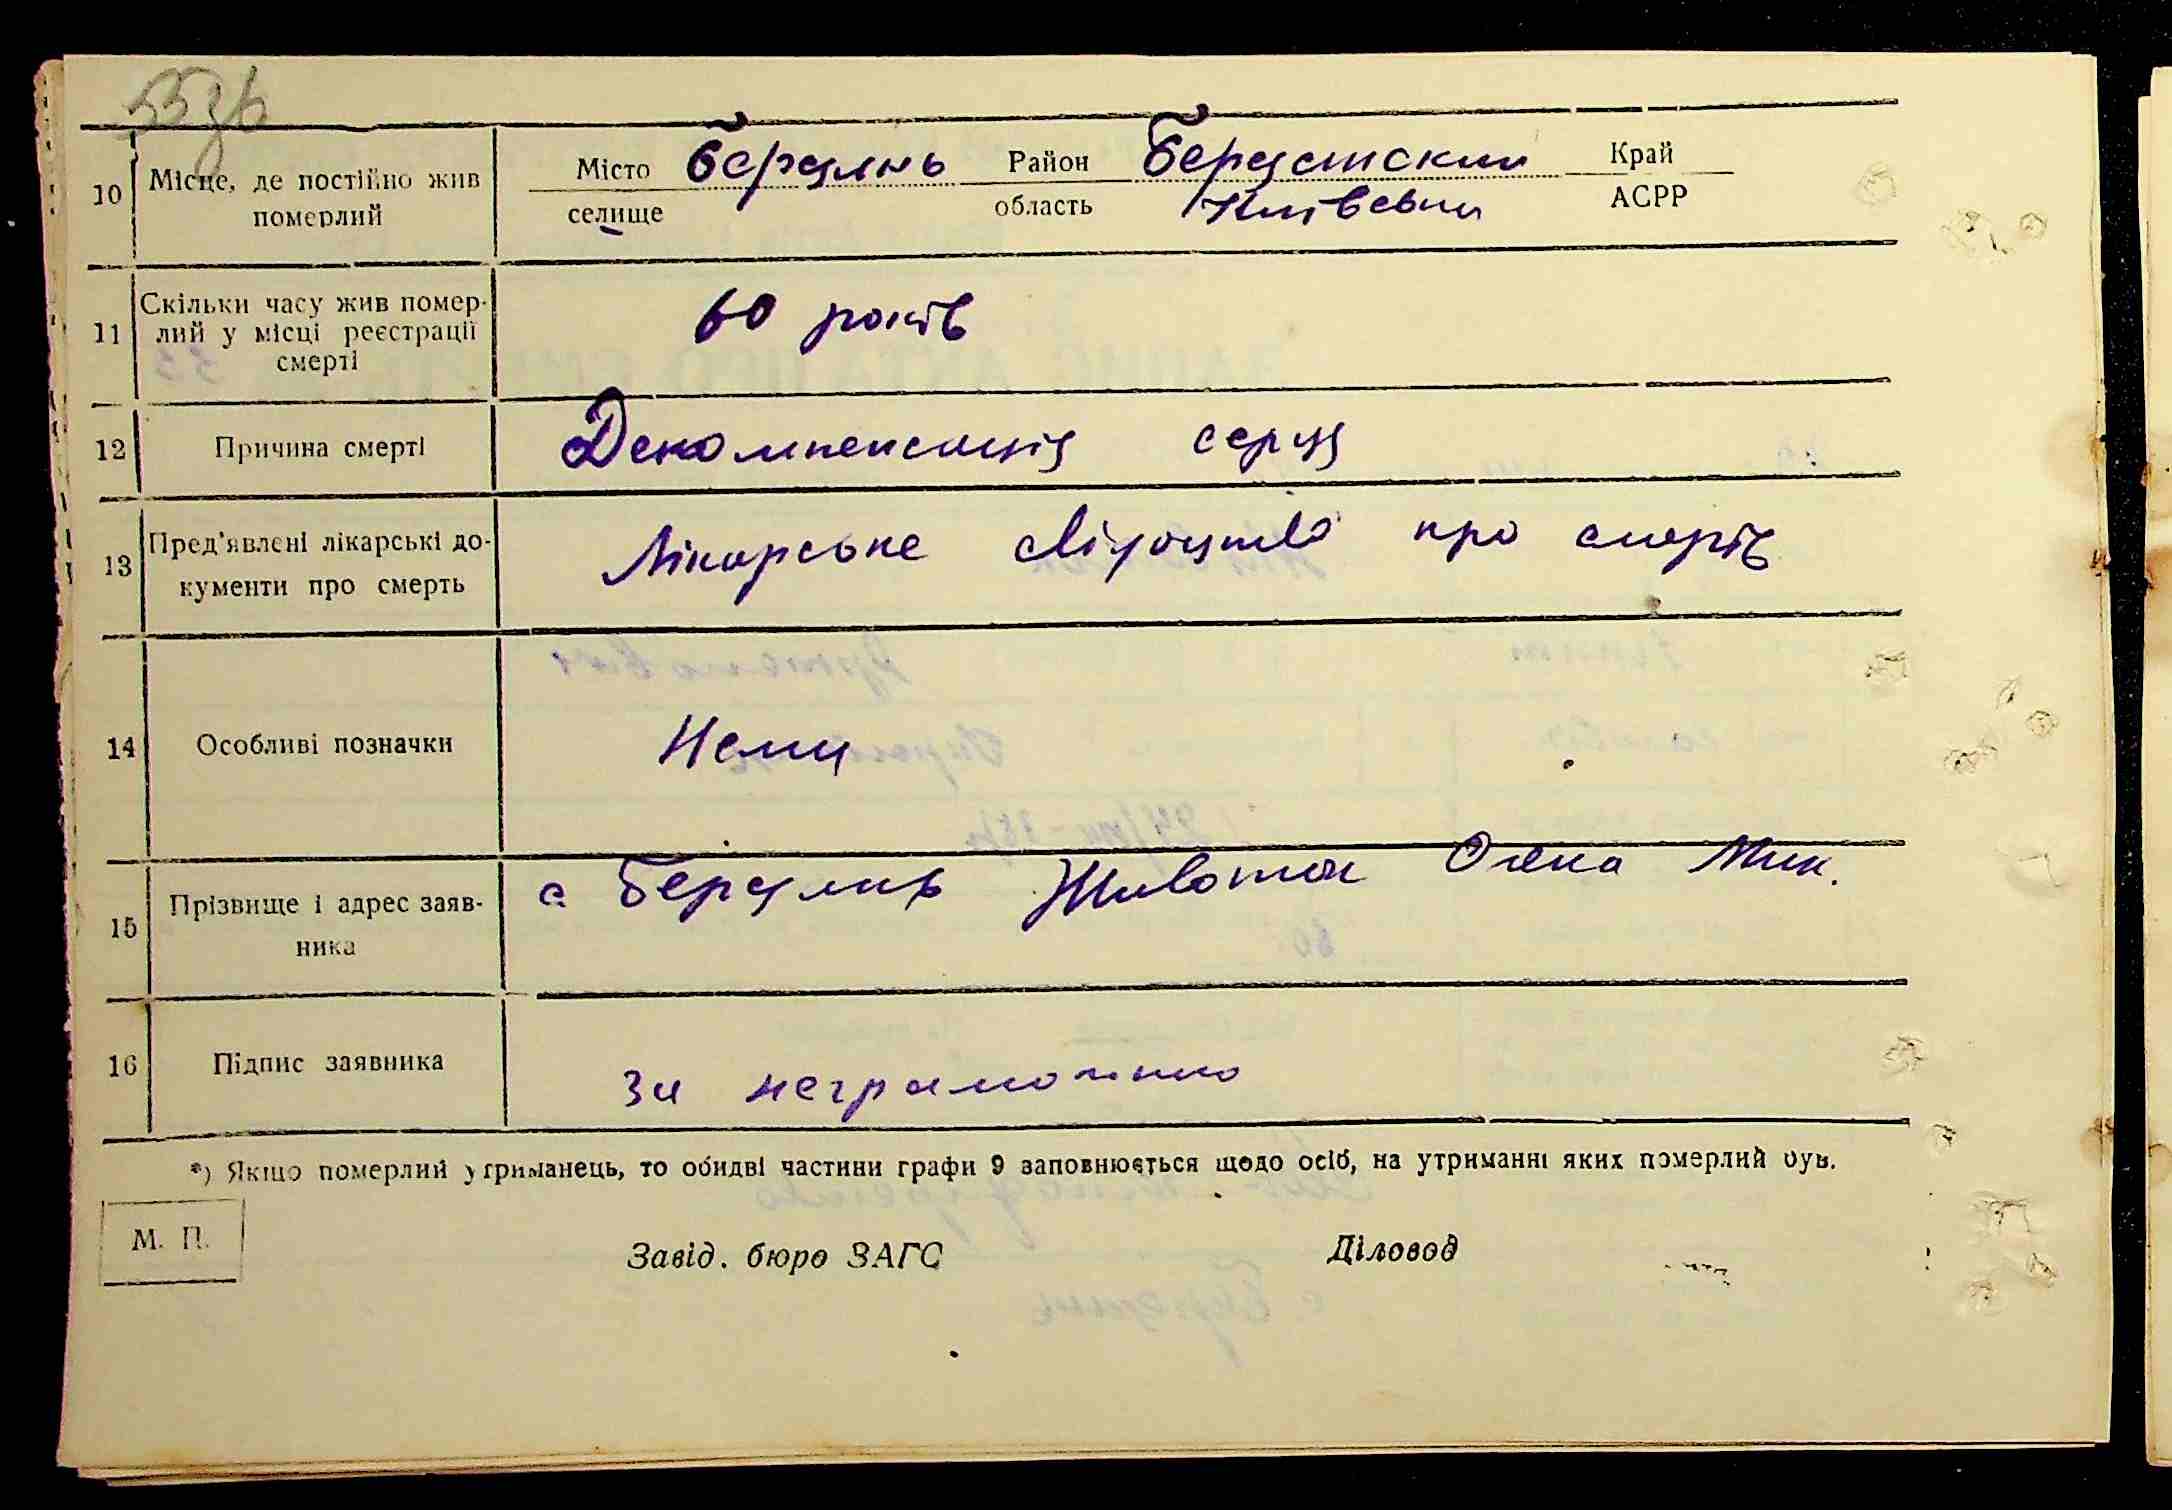 10 Місце, де постійно жив померлий
Місто Район Край
селище область Київськи АСРР
11 Скільки часу жив помер-
лий у місці реєстрації
смерті
60 років
12 Причина смерті Декомпенсація серця
13 Пред'явлені лікарські до-
кументи про смерть
Лікарське свідоцтво про смерть
14 Особливі позначки Нема
15 Прізвище і адрес заяв-
ника
с Олена Мик.
16 Підпис заявника
За неграмотною
*) Якщо померлий утриманець, то обидві частини графи 9 заповнюється щодо осіб, на утриманні яких померлий був.
М. П.
Завід. бюро ЗАГС Діловод